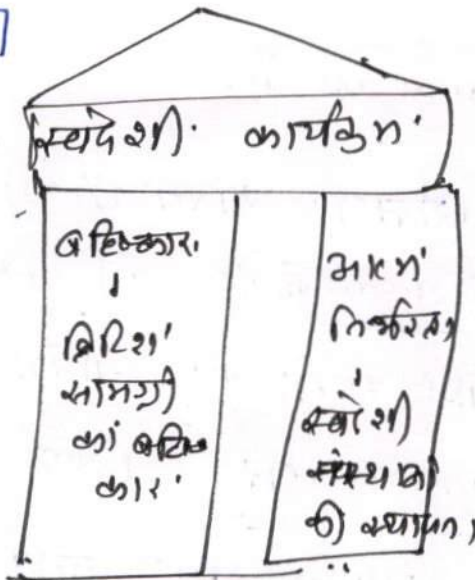 स्वदेशी कार्यक्रम
बहिष्कार
ब्रिटिश
सामग्री
का बहिष्
कार
आत्म
निर्भरता
स्वदेशी
संस्थाओं
की स्थापना